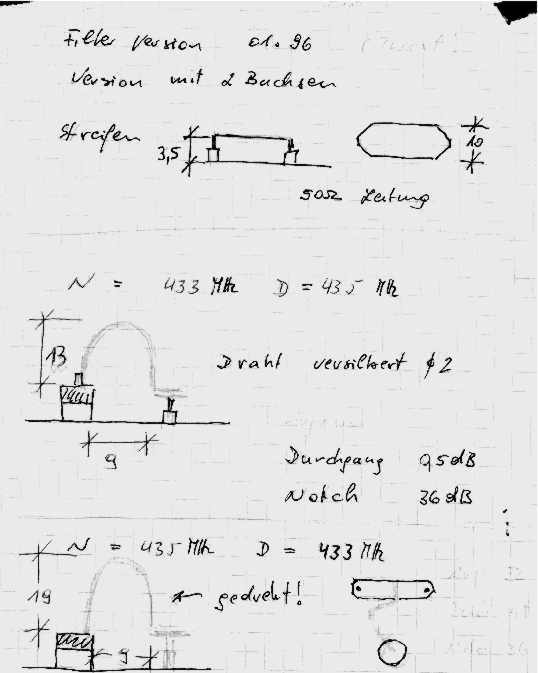 Filter Version 01.96
Version mit 2 Buchsen
Streifen
3,5
10
50Ω Leitung
N = 433 MHz D = 435 MHz
13
Draht versilbert ϕ 2
9
Durchgang 0,5 dB
Notch 36 dB
N = 435 MHz D = 433 MHz
19
gedreht!
9